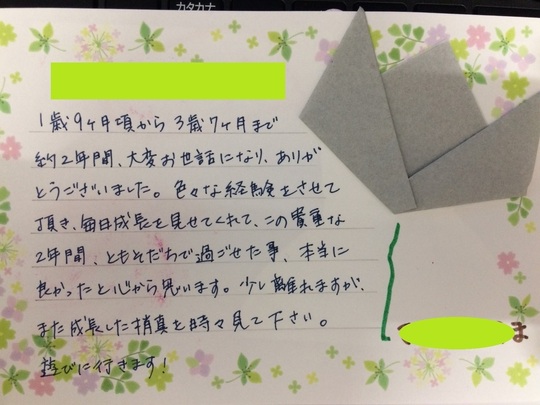 カタカナ
1歳9ヶ月頃から3歳7ヶ月まで
約2年間、大変お世話になり、ありが
とうございました。色々な経験をさせて
頂き、毎日成長を見せてくれて、この貴重な
2年間、ともそだちで過ごせた事、本当に
良かったと心から思います。少し離れますが、
また成長した姉真を時々見て下さい。
遊びに行きます!
ま